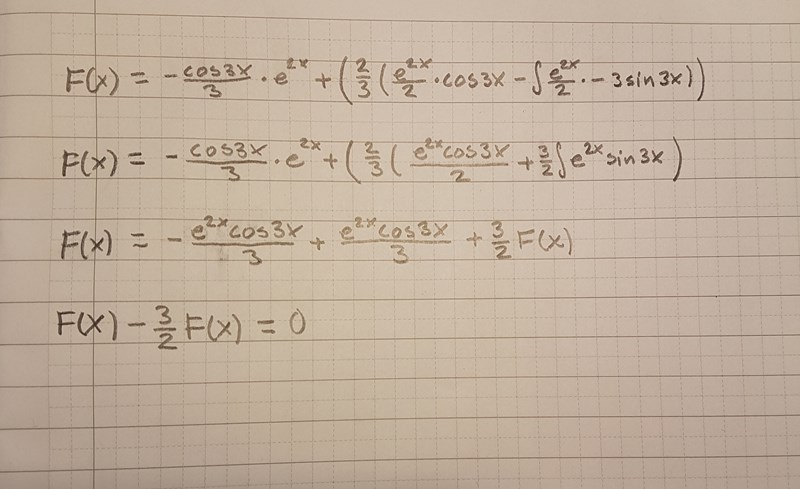 F(x) = - cos3x/3 · e^2x + (2/3 (e^2x/2 · cos3x - ∫ e^2x/2 · - 3 sin3x))
F(x) = - cos3x/3 · e^2x + (2/3 ( e^2x cos3x/2 + 3/2 ∫ e^2x sin3x )
F(x) = - e^2x cos3x/3 + e^2x cos3x/3 + 3/2 F(x)
F(x) - 3/2 F(x) = 0